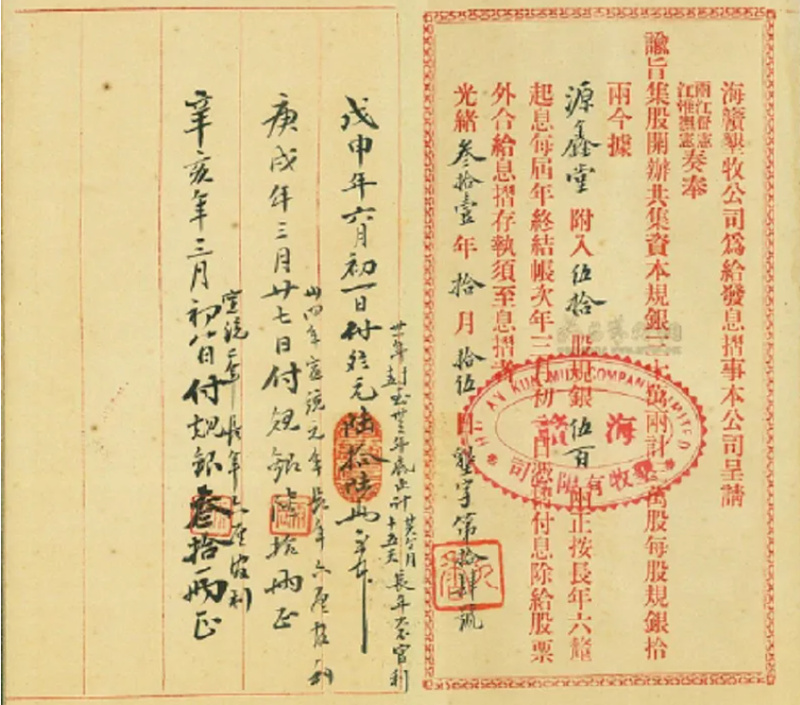 海贛墾牧公司爲給發息摺事本公司呈請
兩江督憲
江淮撫憲
奏奉
諭旨集股開辦共集資本規銀三十萬兩計三萬股每股規銀拾
兩今據
源鑫堂附入伍拾股規銀伍百兩正按長年六釐
起息每屆年終結帳次年三月初一日憑摺付息除給股票
外合給息摺存執須至息摺者
光緒叁拾壹年拾月拾伍日墾字第拾肆號
HAI KUNG COMPANY LIMITED
海贛
墾牧有限公司
戊申年六月初一日付規元陸拾陸兩
庚戌年三月廿七日付規銀陸拾兩正
宣統元年長年六厘官利
辛亥年三月初八日付規銀叁拾兩正
宣統二年長年六厘官利